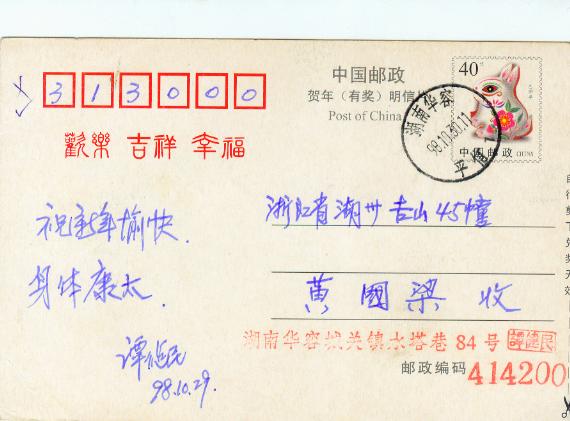 313000
中国邮政
贺年（有奖）明信片
Post of China
40
中国邮政
湖南华容
98.10.30.11
歡樂 吉祥 幸福
浙江省湖州吉山45幢
黄國梁 收
祝新年愉快.
身体康太.
谭健民
98.10.29.
湖南华容城关镇水塔巷84号
譚健民
邮政编码 414200